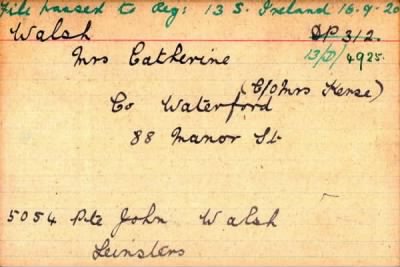 File passed to Reg: 13 S. Ireland 16.9.20
Walsh DP 312.
Mrs Catherine 13/D/4925.
(C/o Mrs Kerse)
Co Waterford
88 Manor St
5054 Pte John Walsh
Leinsters